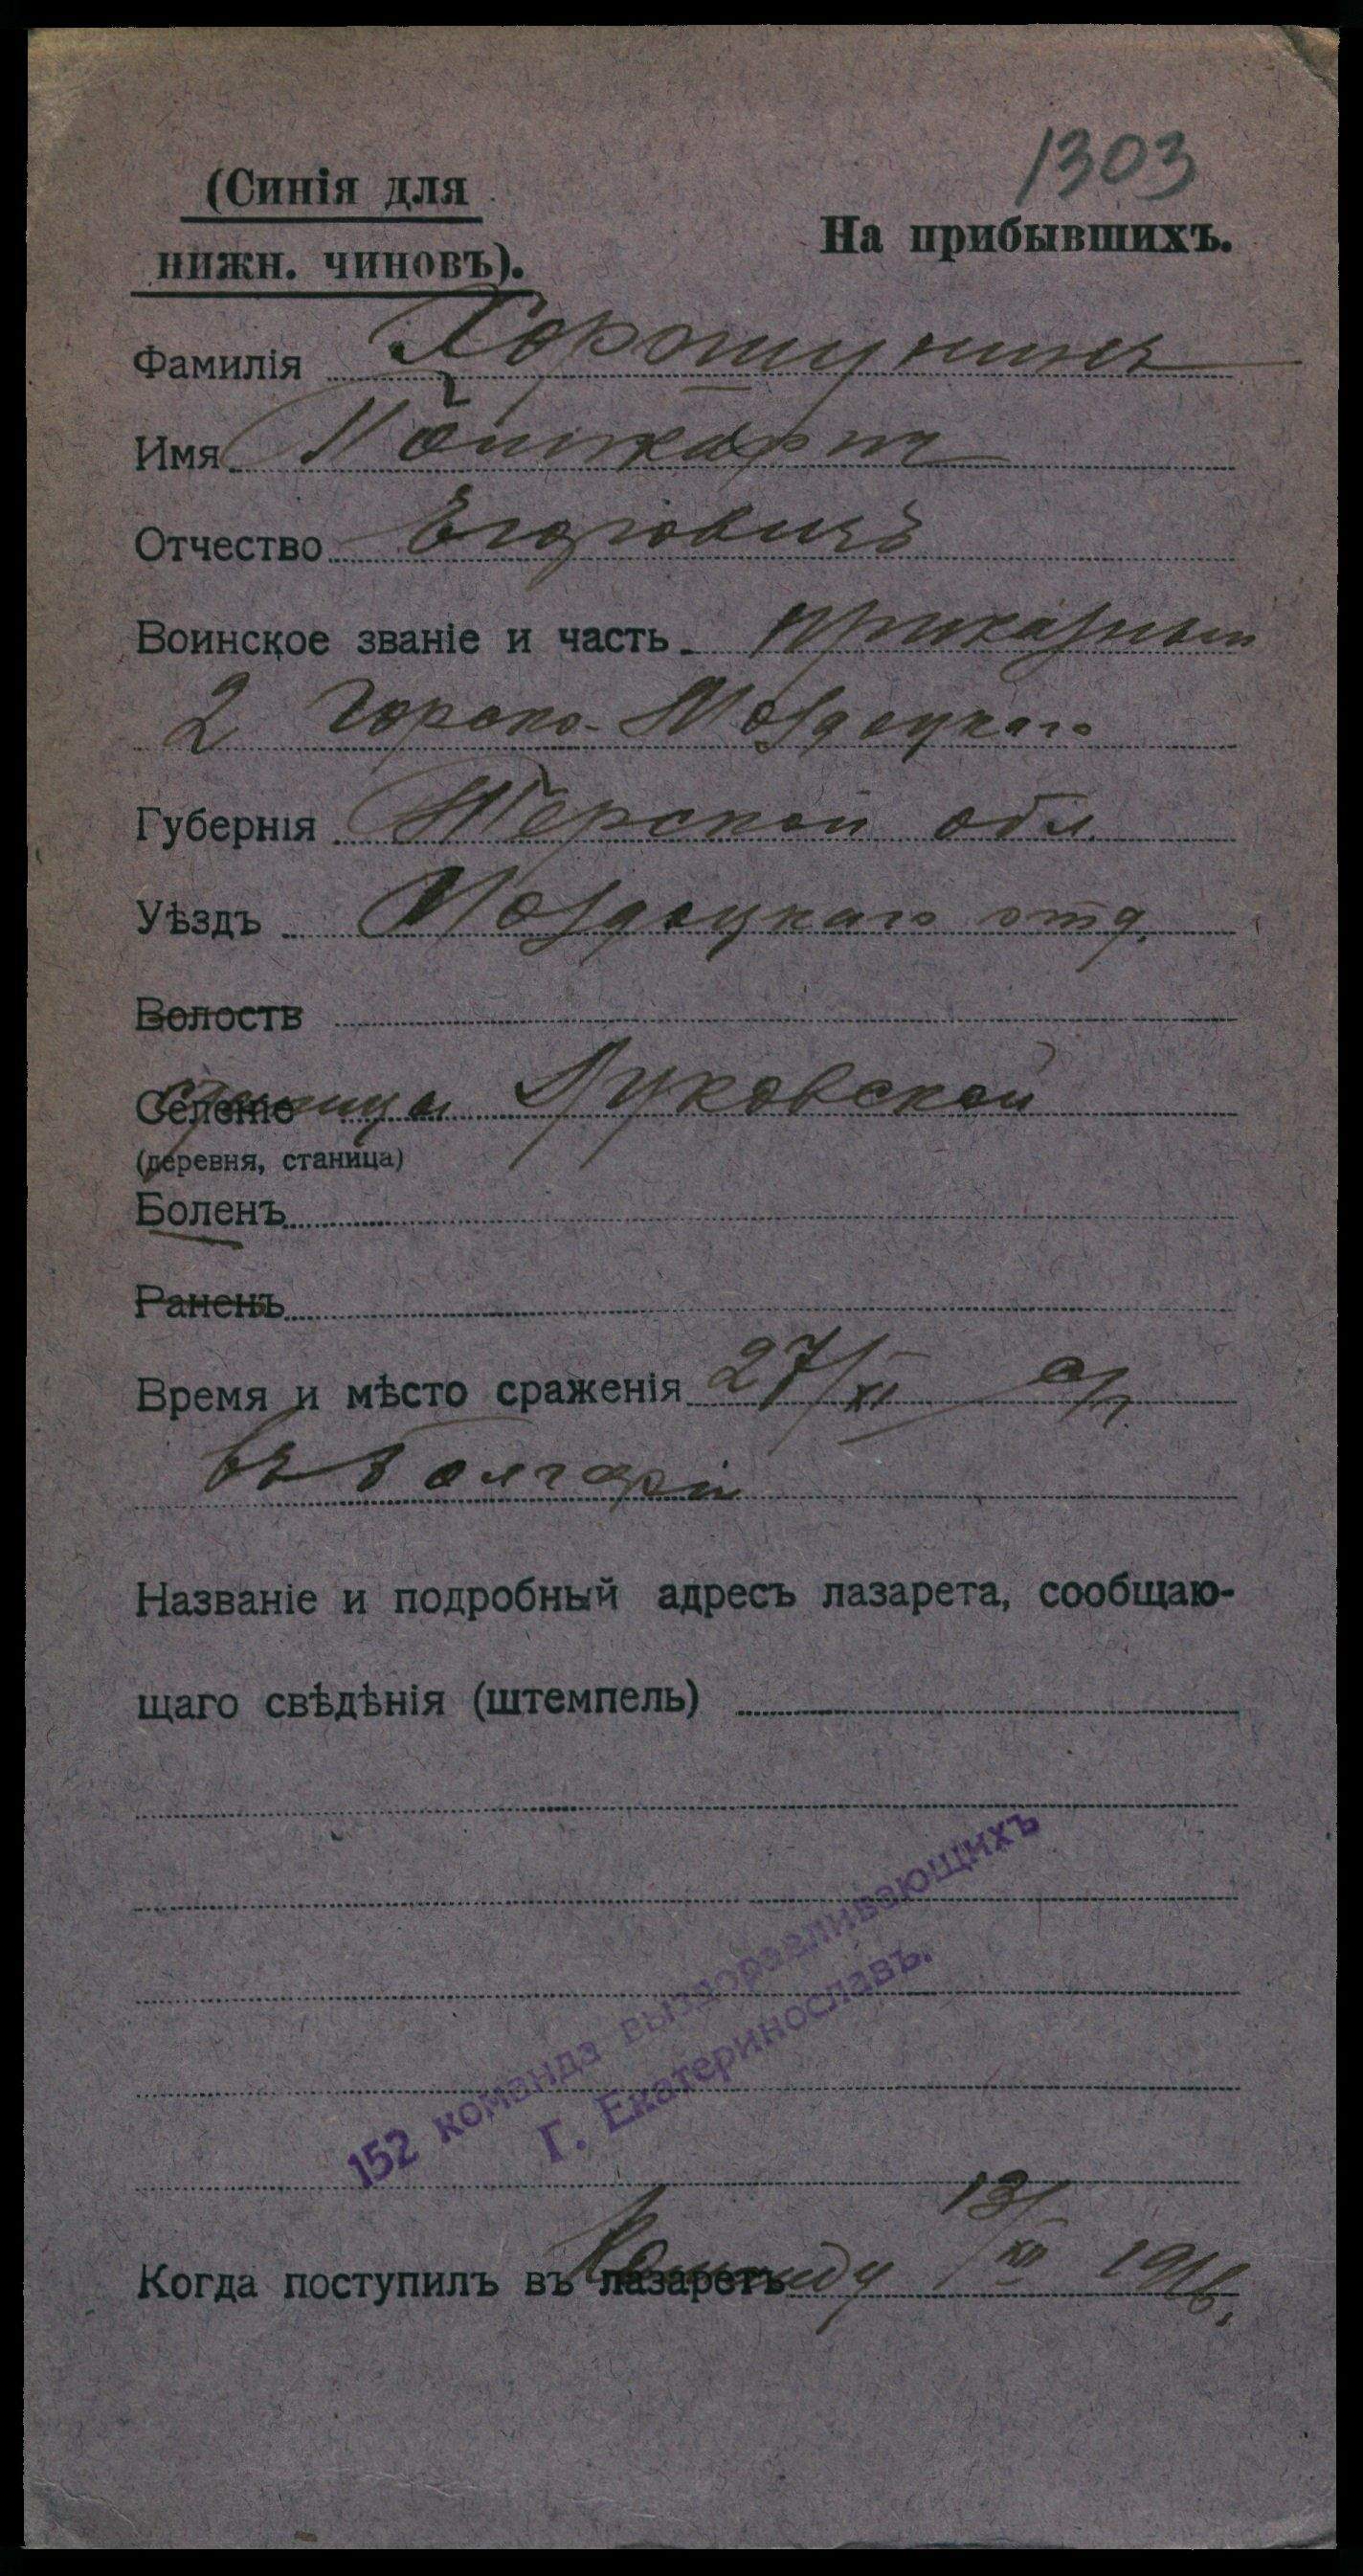 1303
(Синія для
нижн. чиновъ).
На прибывшихъ.
Фамилія Хорошунинъ
Имя
Отчество Егоровичъ
Воинское званіе и часть приказный
2 Горско-Моздоцкаго
Губернія Терской обл.
Уѣздъ Моздоцкаго отд.
Волость
Селеніе станица Луковской
(деревня, станица)
Боленъ
Раненъ
Время и мѣсто сраженія 27/XI
въ Болгаріи
Названіе и подробный адресъ лазарета, сообщаю-
щаго свѣдѣнія (штемпель)
152 команда выздоравливающихъ
Г. Екатеринославъ.
Когда поступилъ въ лазаретъ Команду 13/XII 1916.